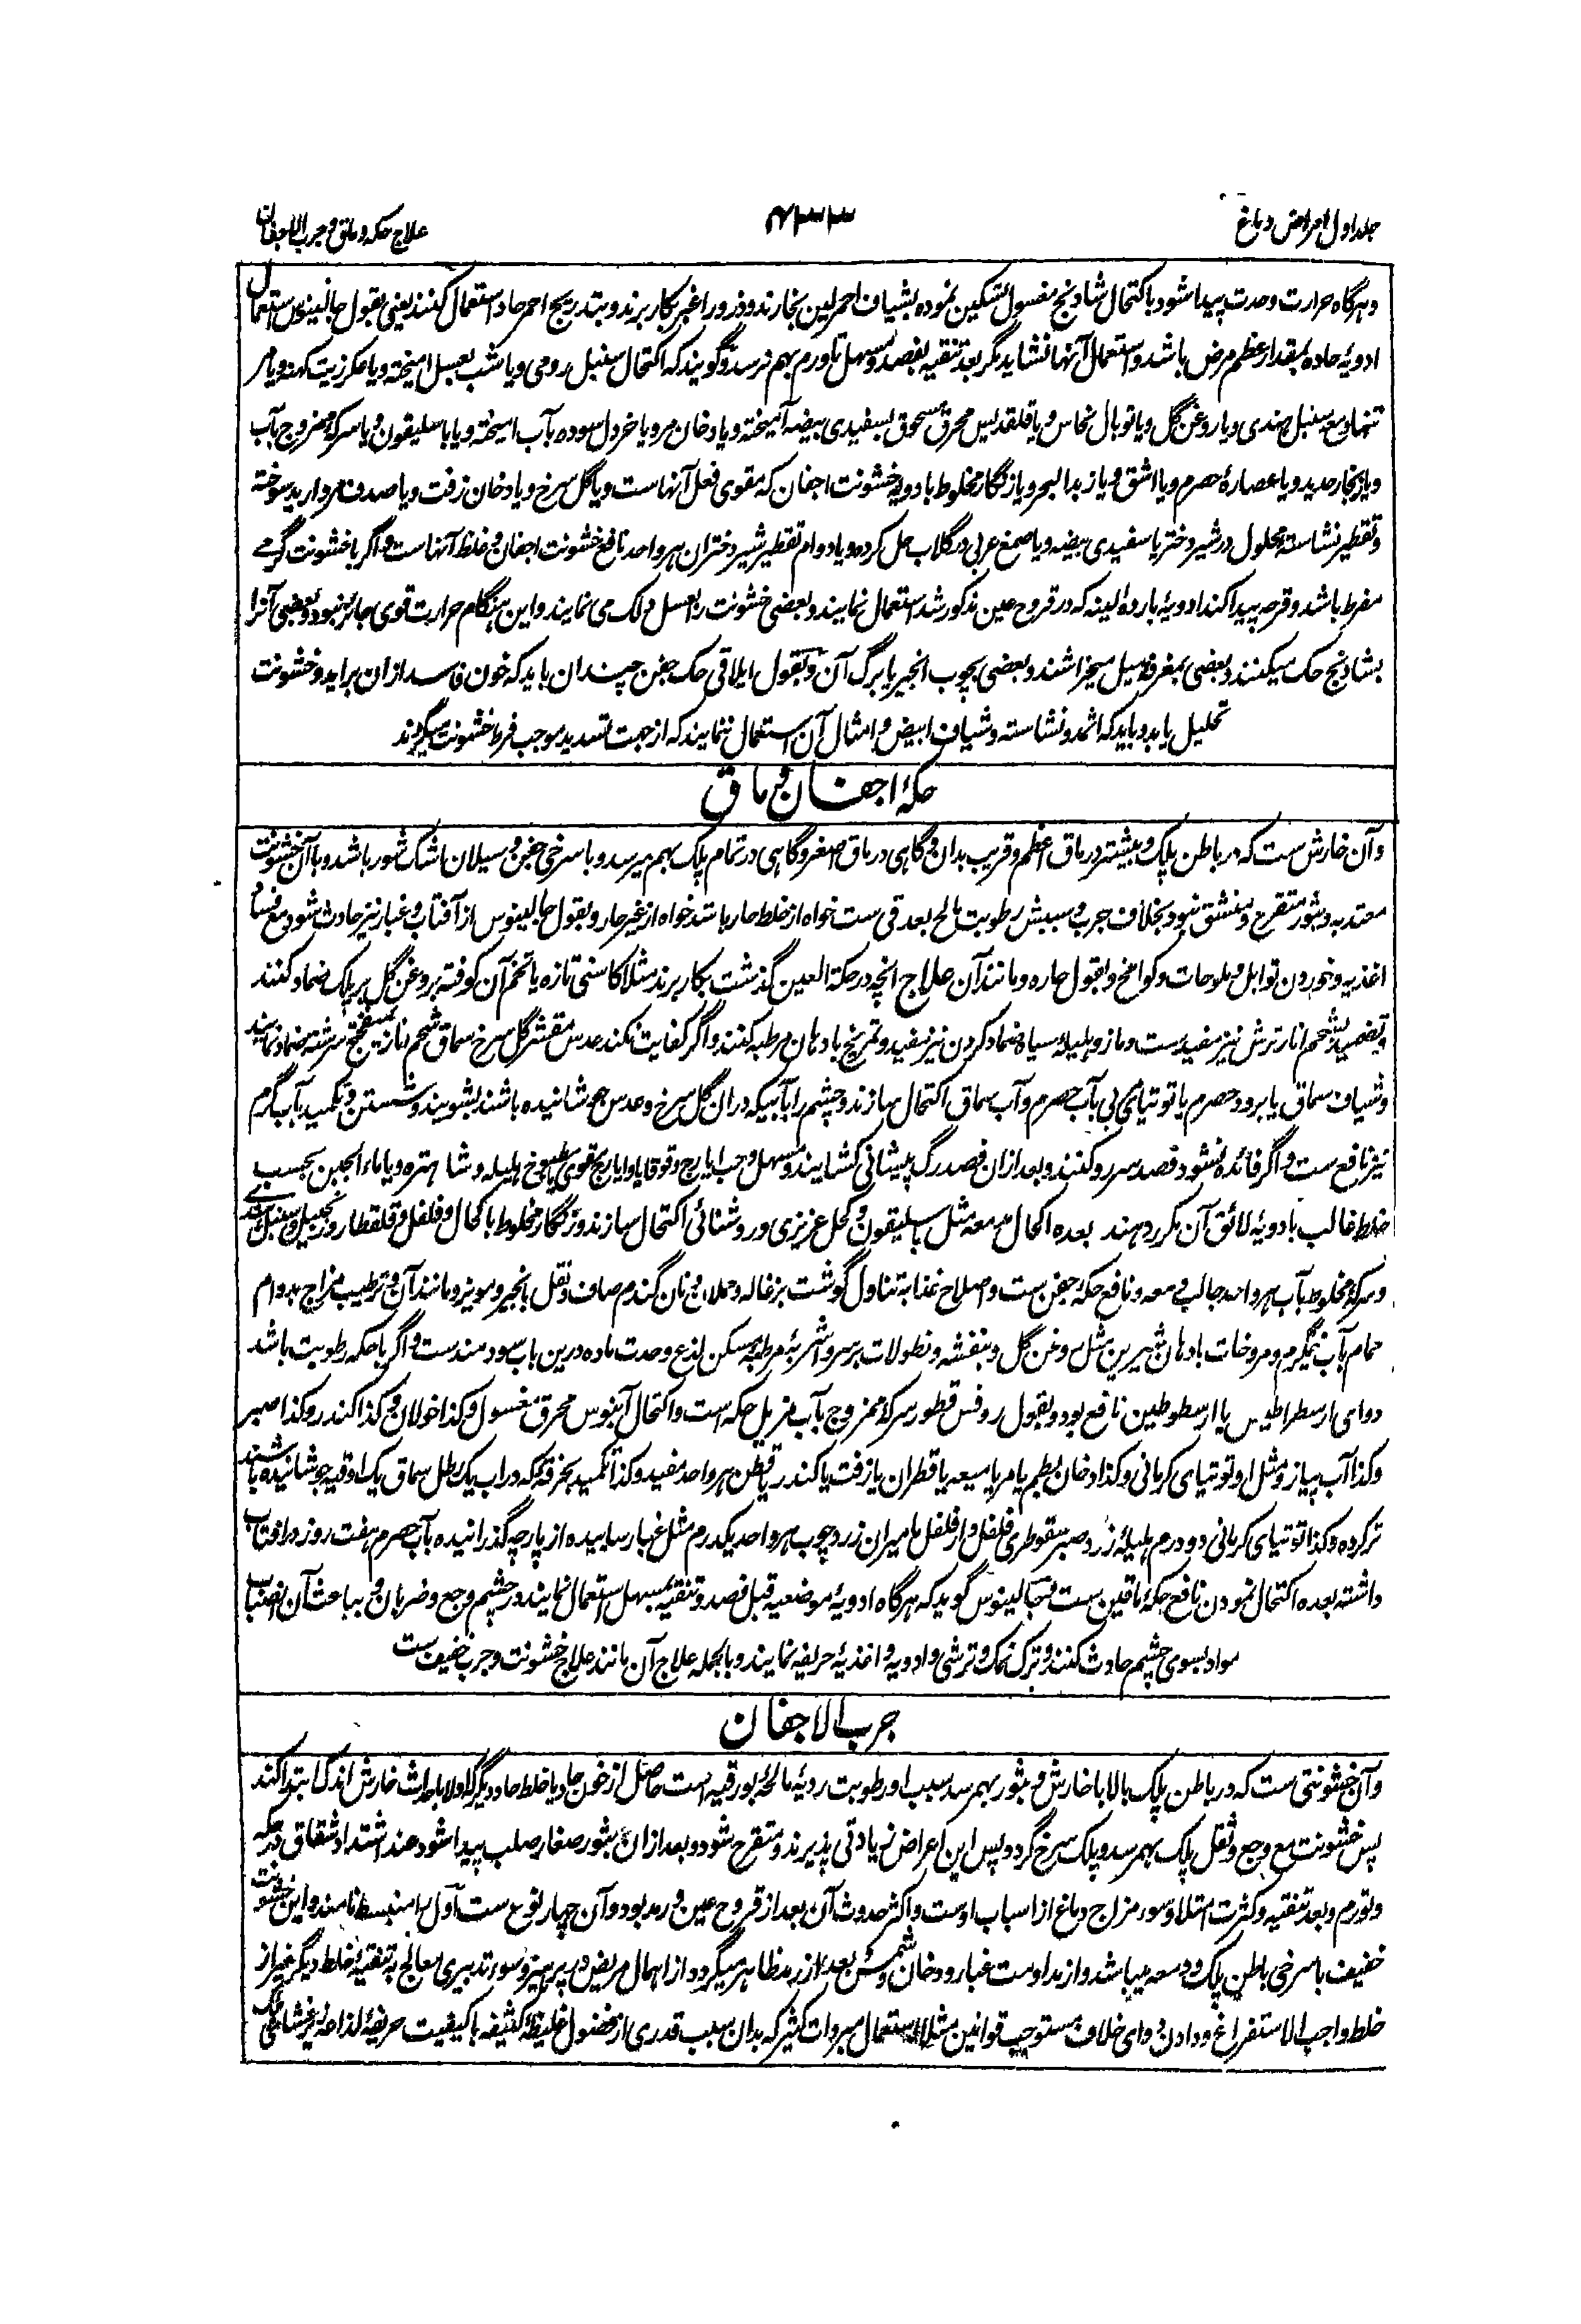 جلد اول امراض دماغ
۴۳۳
علاج حکه و ماق و جرب الاجفان
و هرگاه حرارت و حدت پیدا شود با کتحال شادنج مغسول تسکین نموده بشیاف احمر لین بخارند و ذرور اغبر بکار برند و بتدریج احمر حاد استعمال کنند یعنی بقول جالینوس استعمال
ادویهٔ حاده بمقدار عظم مرض باشد و استعمال آنها نشاید مگر بعد تنقیه بفصد و مسهل تا ورم بهم نرسد و گویند که اکتحال سنبل رومی و یا شب بعسل آمیخته و یا عکر زیت کهنه و یا مر
تنها و مع سنبل هندی و یا روغن گل و یا توبال نحاس و یا قلقدیس محرق مسحوق بسفیدی بیضه آمیخته و یا دخان مر و یا خردل سوده بآب آمیخته و یا باسلیقون و یا سرکه ممزوج بآب
و یا زنجار حدید و یا عصارهٔ حصرم و یا اشق و یا زبد البحر و یا زنگار مخلوط بادویهٔ خشونت اجفان که مقوی فعل آنهاست و یا گل سرخ و یا دخان زفت و یا صدف مروارید سوخته
و تقطیر نشاسته محلول در شیر دختر یا سفیدی بیضه و یا صمغ عربی در گلاب حل کرده و یا دوام تقطیر شیر دختران هر واحد نافع خشونت اجفان و غلظ آنهاست و اگر با خشونت گرمی
مفرط باشد و قرحه پیدا کند ادویهٔ باردهٔ لینه که در قروح عین مذکور شد استعمال نمایند و بعضی خشونت را بعسل دلک می نمایند و این هنگام حرارت قوی جائز نبود و بعضی آنرا
بشادنج حک میکنند و بعضی بمغرفه میل میخراشند و بعضی بچوب انجیر یا برگ آن و بقول ایلاقی حک جفن چندان باید که خون فاسد ازان براید و خشونت
تحلیل یابد و باید که اثمد و نشاسته و شیاف ابیض و امثال آن استعمال ننمایند که از جهت تسدید موجب فرط خشونت میگردند
حکهٔ اجفان و ماق
و آن خارش ست که در باطن پلک و بیشتر در ماق اعظم و قریب بدان و گاهی در ماق اصغر و گاهی در تمام پلک بهم میرسد و با سرخی جفن و سیلان اشک شور باشد و با آن خشونت
معتد به و بثور متقرح و منشق نبود بخلاف جرب و سببش رطوبت مالح بورقی ست خواه از خلط حار باشد خواه از غیر حار و بقول جالینوس از آفتاب و غبار نیز حادث شود مع فساد
اغذیه و خوردن توابل و ملوحات و کوامخ و بقول حاره و مانند آن علاج انچه در حکة العین گذشت بکار برند مثلا کاسنی تازه یا تخم آن کوفته بروغن گل بر پلک ضماد کنند
تضمید بشحم انار ترش نیز مفیدست و مازو و هلیله سیاه ضماد کردن نیز مفید و تمریخ بادهان مرطبه کنند و اگر کفایت نکند عدس مقشر گل سرخ سماق شحم انار بمیفختج سرشته ضماد نمایند
و شیاف سماق یا برود حصرم یا توتیای مربی بآب حصرم و آب سماق اکتحال سازند و چشم را بآبیکه دران گل سرخ و عدس جوشانیده باشند بشویند و شستن و تکمید بآب گرم
نیز نافع ست و اگر فائده نشود فصد سررو کنند و بعد ازان فصد رگ پیشانی کشایند و مسهل و حب ایارج و قوقایا و ایارج مقوی یا مطبوخ هلیله و شاهتره و یا ماء الجبن بحسب
خلط غالب بادویهٔ لائق آن مکرر دهند بعده اکحال مدمعه مثل باسلیقون و کحل عزیزی و روشنائی اکتحال سازند و زنگار مخلوط با کحال و فلفل و قلقطار و زنجبیل و سنبل
و سرکه مخلوط بآب هر واحد جالب دمعه و نافع حکهٔ جفن ست و اصلاح غذا بتناول گوشت بزغاله و حملان و نان گندم صاف و نقل بانجیر و مویز و مانند آن و ترطیب مزاج بدوام
حمام بآب نیمگرم و مروخات بادهان شیرین مثل روغن گل و بنفشه و نطولات بر سر و اشربهٔ مرطبه مسکن لذع و حدت ماده درین باب سودمندست و اگر با حکه رطوبت باشد
دوای ارسطراطیس یا ارسطوطین نافع بود و بقول روفس قطور سرکه ممزوج بآب مزیل حکه است و اکتحال آبنوس محرق مغسول و کذا خولان و کذا کندر و کذا صبر
و کذا آب پیاز و مثل او توتیای کرمانی و کذا دخان بطم یا مر یا میعه یا قطران یا زفت یا کندر یا قطن هر واحد مفید و کذا تکمید بخرقه که در آب یک رطل سماق یک اوقیه جوشانیده باشند
تر کرده و کذا توتیای کرمانی دو درم هلیلهٔ زرد صبر سقوطری فلفل دارفلفل مامیران زردچوب هر واحد یکدرم مثل غبار ساییده از پارچه گذرانیده بآب حصرم هفت روز در آفتاب
داشته بعده اکتحال نمودن نافع حکهٔ ماقین ست و جالینوس گوید که هرگاه ادویهٔ موضعیه قبل فصد و تنقیه بمسهل استعمال نمایند در چشم وجع و ضربان و بباعث آن انصباب
مواد بسوی چشم حادث کنند و ترک نمک و ترشی و ادویه و اغذیهٔ حریفه نمایند و بالجمله علاج آن مانند علاج خشونت و جرب خفیف ست
جرب الاجفان
و آن خشونتی ست که در باطن پلک بالا با خارش و بثور بهم رسد سبب او رطوبت ردیهٔ مالحهٔ بورقیه است حاصل از خون حاد یا خلط حاد دیگر که اولا باحداث خارش اندک ابتدا کند
پس خشونت مع وجع و ثقل پلک بهم رسد و پلک سرخ گردد پس این اعراض زیادتی پذیرند و متقرح شود و بعد ازان بثور صغار صلب پیدا شود عند اشتداد شقاق و حکه
و تورم و بعد تنقیه و کثرت امتلا و سوء مزاج دماغ از اسباب اوست و اکثر حدوث آن بعد از قروح عین و رمد بود و آن چهار نوع ست اول را منبسط نامند و این خشونت
خفیف با سرخی باطن پلک و دمعه میباشد و از مبدأ اوست غبار و دخان و شمس بعد از رمد ظاهر میگردد از اهمال مریض در پرهیز و سوء تدبیری معالج به تنقیهٔ خلط دیگر غیر از
خلط واجب الاستفراغ و دادن دوای خلاف مستوجب قوانین مثلا استعمال مبردات کثیر که بدان سبب قدری از فضول غلیظهٔ کثیفه با کیفیت حریفهٔ لذاعه زیر غشای پلک